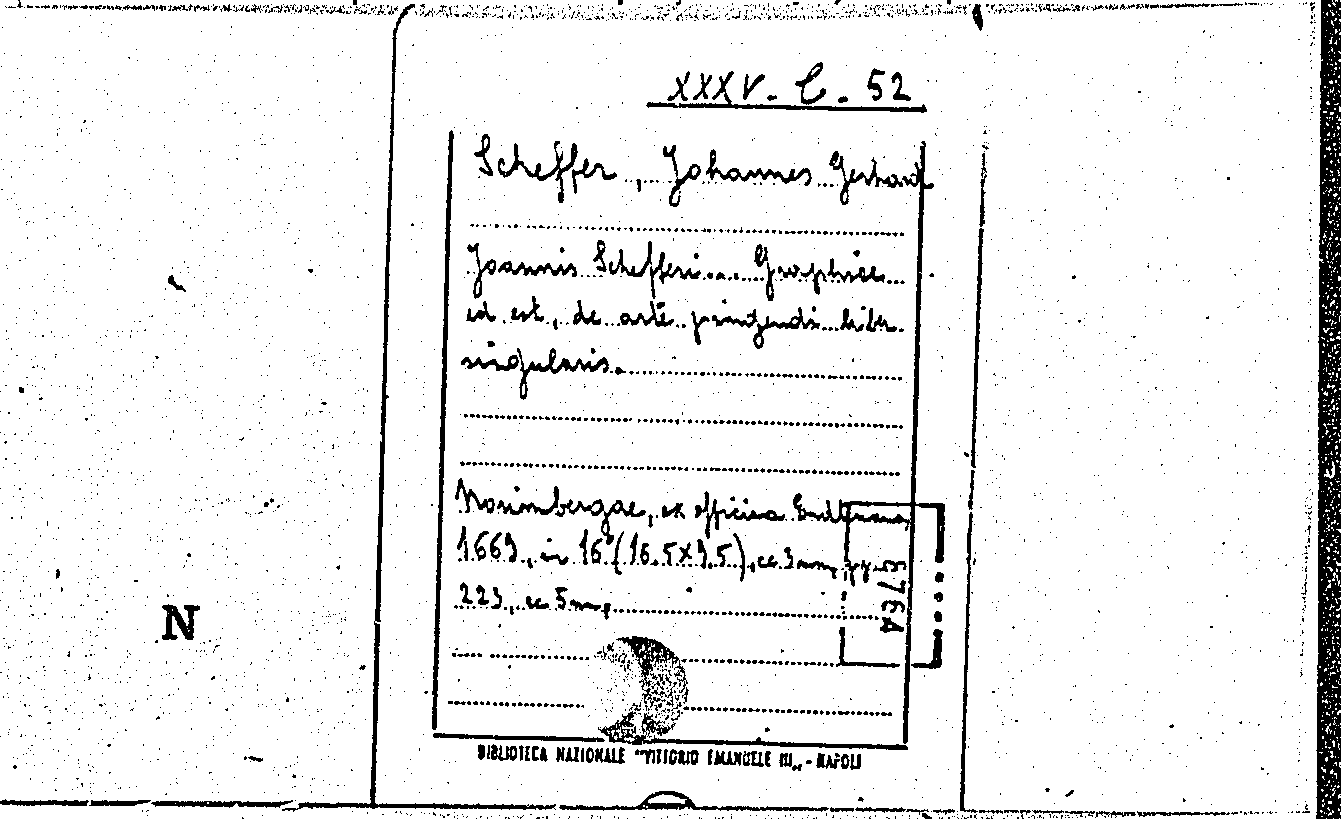 XXXV. C. 52
Scheffer, Johannes Gerhard
Joannis Schefferi... Graphice
id est, de arte pingendi liber
singularis.
Norimbergae, ex officina Endteriana,
1669, in 16° (16.5x9.5), cc 3 nn, pp.
223, cc 5 nn,
5764
N
BIBLIOTECA NAZIONALE "VITTORIO EMANUELE III„ - NAPOLI